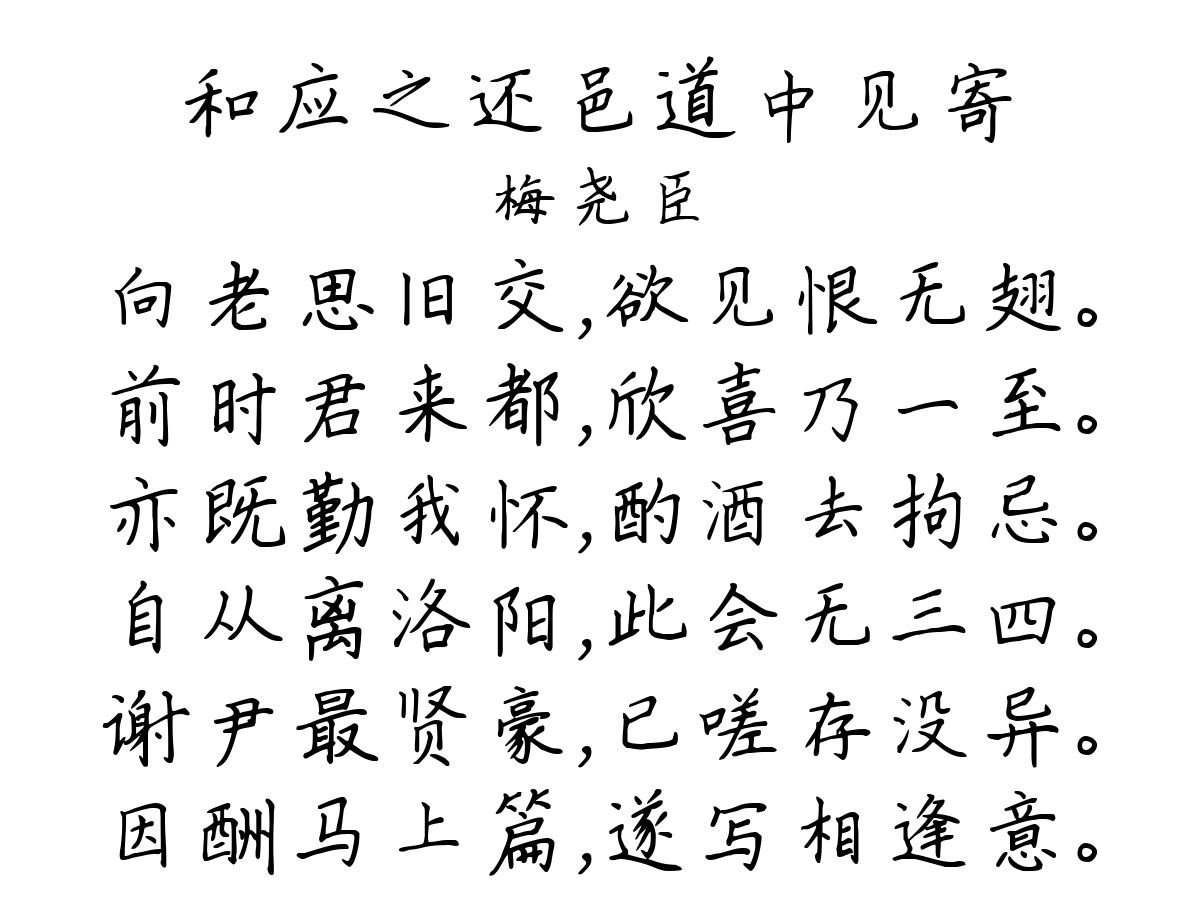 和应之还邑道中见寄
梅尧臣
向老思旧交,欲见恨无翅。
前时君来都,欣喜乃一至。
亦既勤我怀,酌酒去拘忌。
自从离洛阳,此会无三四。
谢尹最贤豪,已嗟存没异。
因酬马上篇,遂写相逢意。